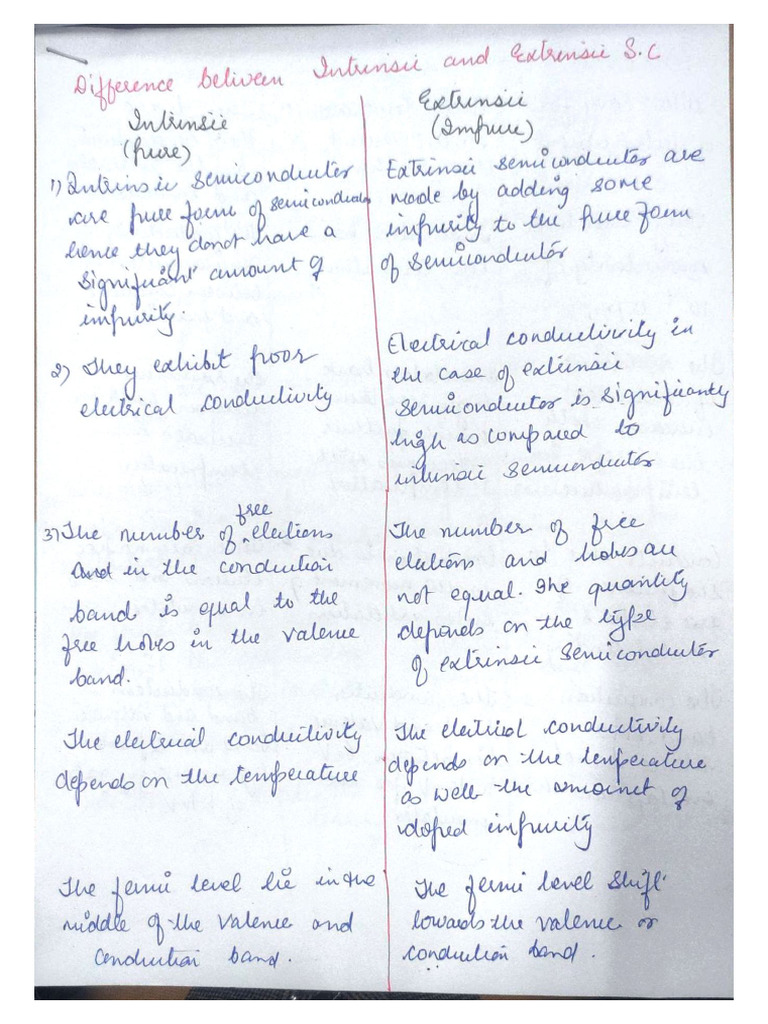 Difference between Intrinsic and Extrinsic S.C
Intrinsic
(pure)
1) Intrinsic semiconductor
are pure form of semiconductor
hence they donot have a
significant amount of
impurity.
2) They exhibit poor
electrical conductivity
3) The number of free electrons
and in the conduction
band is equal to the
free holes in the valence
band.
The electrical conductivity
depends on the temperature
The fermi level lie in the
middle of the valence and
conduction band.
Extrinsic
(Impure)
Extrinsic semiconductor are
made by adding some
impurity to the pure form
of semiconductor
Electrical conductivity in
the case of extrinsic
semiconductor is significantly
high as compared to
intrinsic semiconductor
The number of free
electrons and holes are
not equal. The quantity
depends on the type
of extrinsic semiconductor
The electrical conductivity
depends on the temperature
as well the amount of
doped impurity
The fermi level shift
towards the valence or
conduction band.